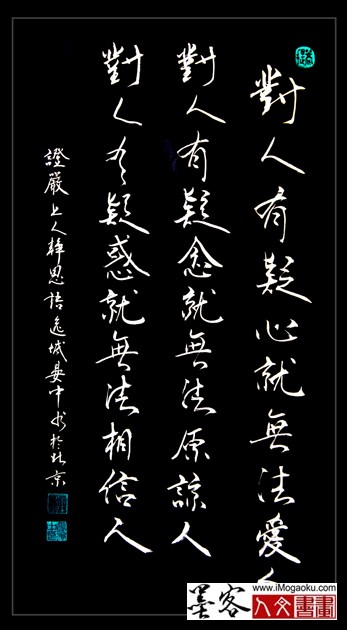 對人有疑心就無法愛人
對人有疑念就無法原諒人
對人有疑惑就無法相信人
證嚴上人靜思語逸城晏中书於北京
www.iMogaoku.com
墨客
人文書畫